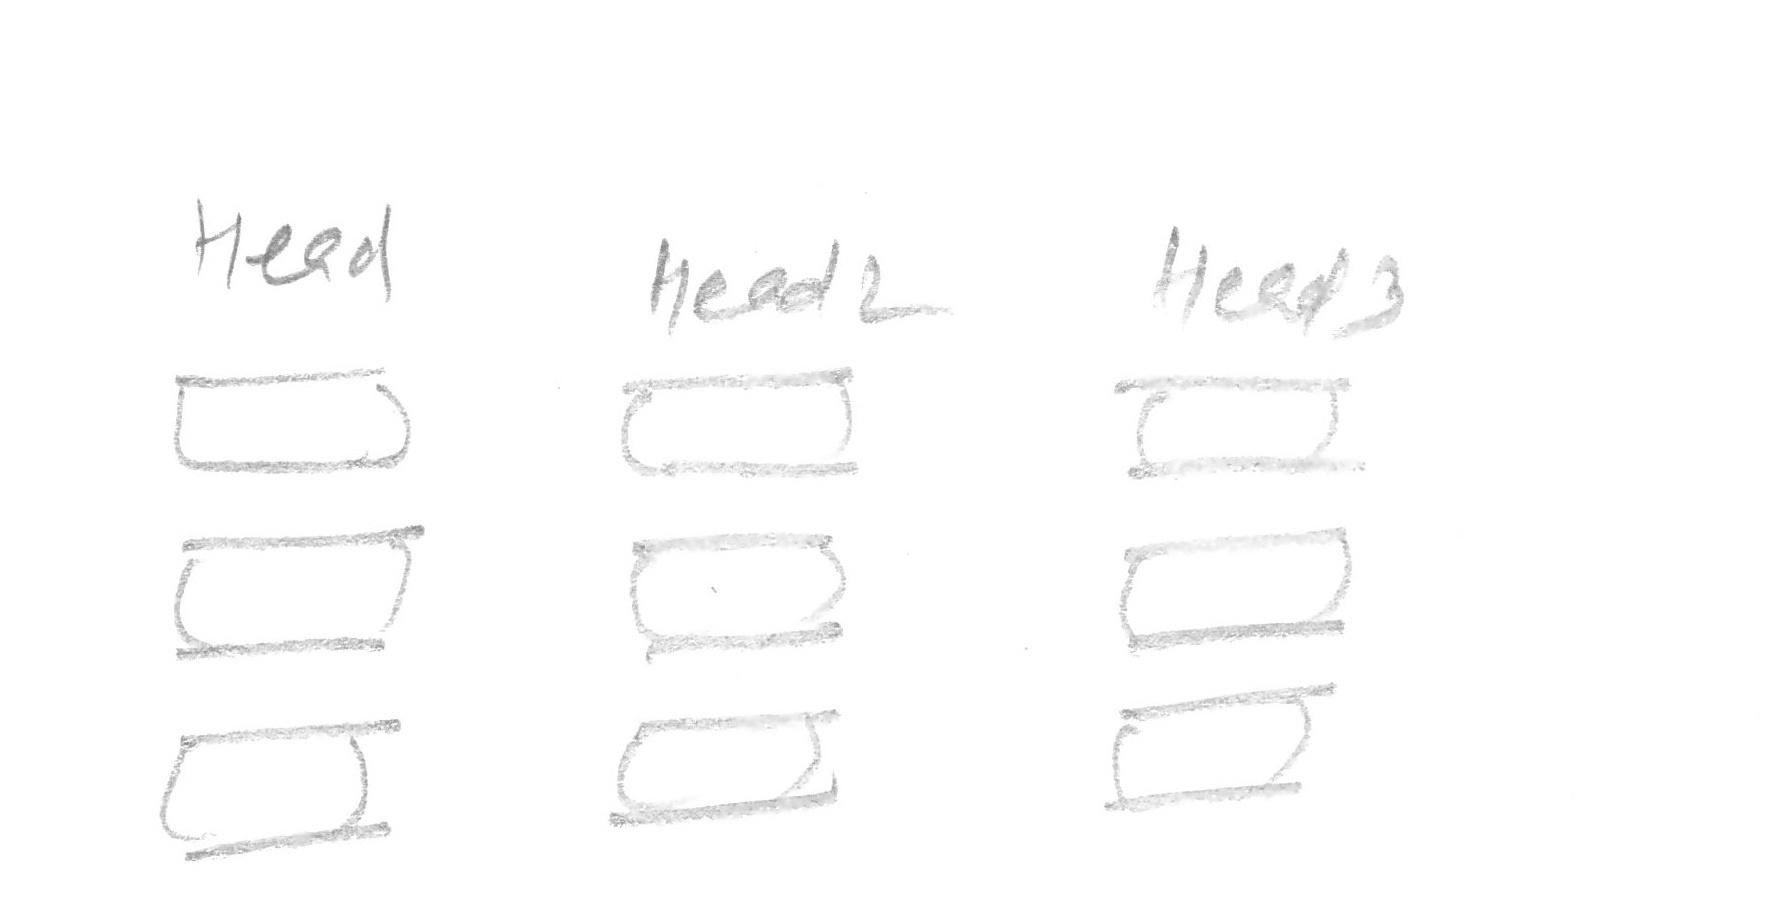 Head Head 2 Head 3